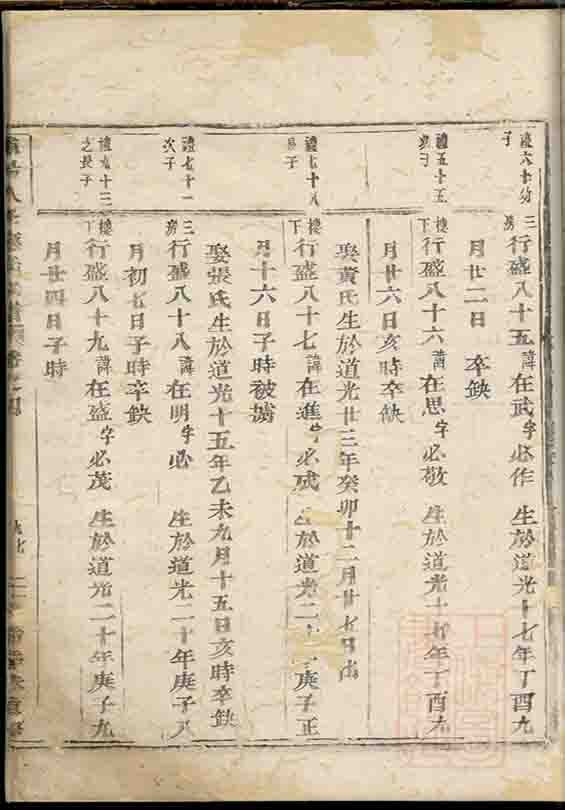 禮六十
子
三房行盛八十五諱在武字必作 生於道光十七年丁酉九
月廿二日 卒缺
禮五十五
次子
樓下行盛八十六諱在思字必敬 生於道光十七年丁酉九
月廿六日亥時卒缺
娶黃氏生於道光廿三年癸卯十二月廿七日
禮七十八
子
樓下行盛八十七諱在進字必成 生於道光二十年庚子正
月十六日子時被擄
娶張氏生於道光十五年乙未九月十五日亥時卒缺
禮七十一
次子
三房行盛八十八諱在明字必 生於道光二十年庚子八
月初七日子時卒缺
禮七十三
之長子
樓下行盛八十九諱在盛字必茂 生於道光二十年庚子九
月廿四日子時